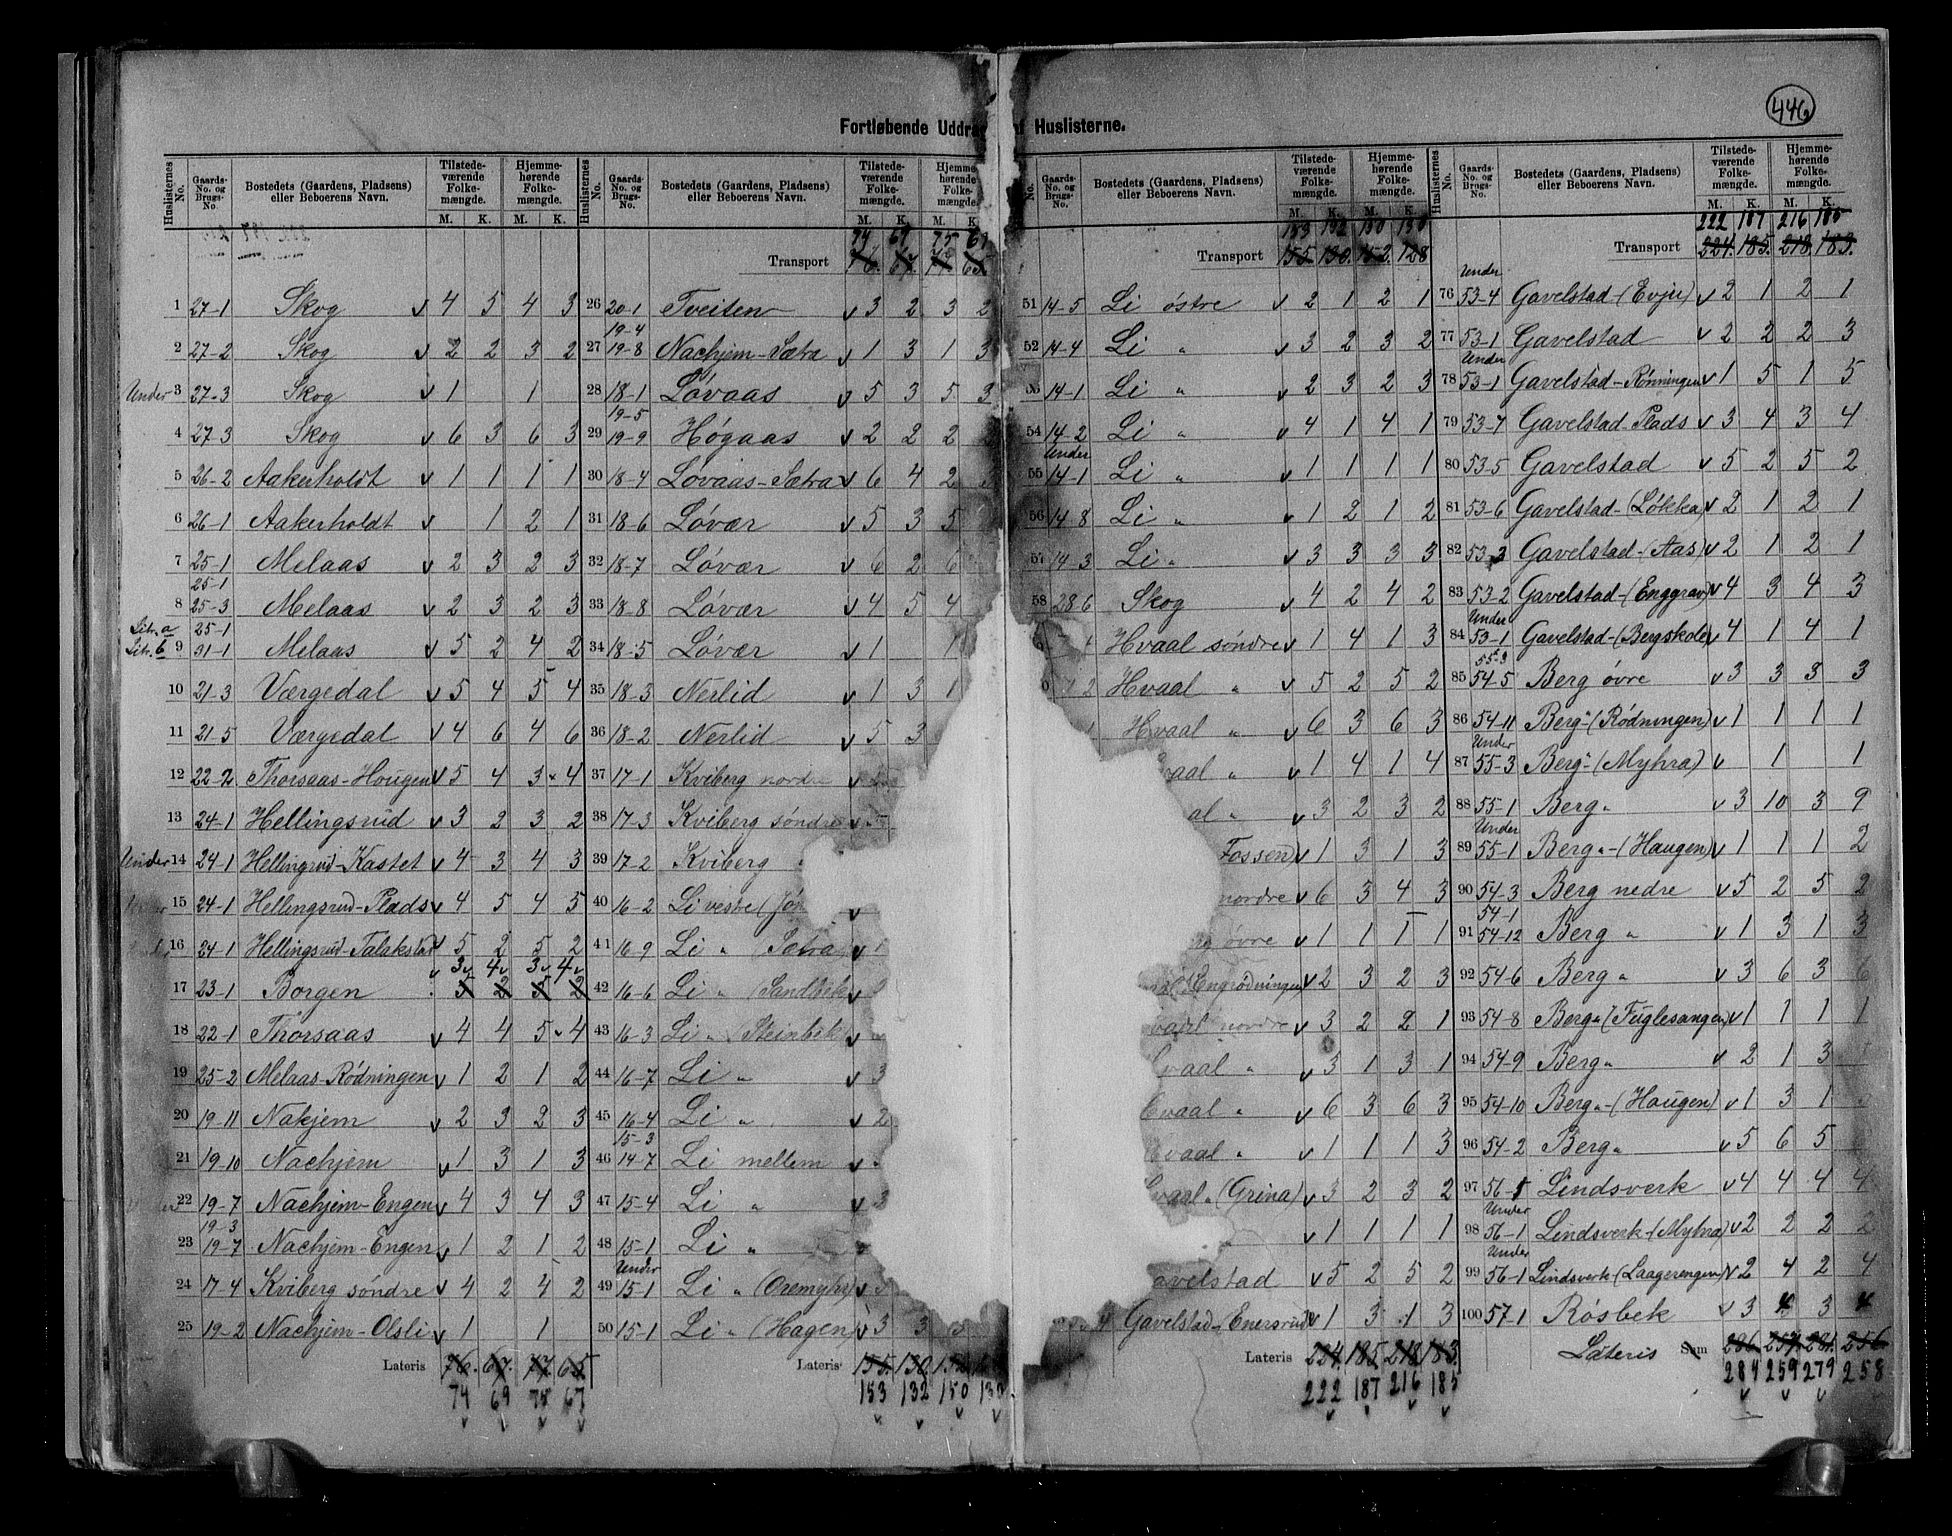 446
Fortløbende Uddrag af Huslisterne.
Huslisternes No. Gaards-No. og Brugs-No. Bostedets (Gaardens, Pladsens) eller Beboerens Navn. Tilstedeværende Folkemængde. M. K. Hjemmehørende Folkemængde. M. K.
1 27-1 Skog v 4 5 4 3
2 27-2 Skog v 2 2 3 2
Under 3 27-3 Skog v 1 1
4 27-3 Skog v 6 3 6 3
5 26-2 Aakerholdt v 1 1 1 1
6 26-1 Aakerholdt v 1 2 1
7 25-1 Melaas v 2 3 2 3
8 25-1 25-3 Melaas v 2 3 2 3
Litr. a Litr. b 9 25-1 31-1 Melaas v 5 2 4 2
10 21-3 Værgedal v 5 4 5 4
11 21-5 Værgedal v 4 6 4 6
12 22-2 Thorsaas-Hougen v 5 4 3 4
13 24-1 Hellingsrud v 3 2 3 2
Under 14 24-1 Hellingsrud-Kastet v 4 3 4 3
15 24-1 Hellingsrud-Plads v 4 5 4 5
16 24-1 Hellingsrud-Falakstad v 5 2 5 2
v 3v 4v 3v 4v
17 23-1 Borgen 5 2 5 2
18 22-1 Thorsaas v 4 4 5 4
19 25-2 Melaas-Rødningen v 1 2 1 2
20 19-11 Nakjem v 2 3 2 3
21 19-10 Nachjem v 1 3 1 3
22 19-7 Nachjem-Engen v 4 3 4 3
23 19-3 19-7 Nachjem-Engen v 1 2 1 2
24 17-4 Kviberg søndre v 4 2 4 2
25 19-2 Nachjem-Olsli v 1 1
Lateris 76. 67. 77. 65
74 69 75 67
Huslisternes No. Gaards-No. og Brugs-No. Bostedets (Gaardens, Pladsens) eller Beboerens Navn. Tilstedeværende Folkemængde. M. K. Hjemmehørende Folkemængde. M. K.
Transport 76. 67. 65
26 20-1 Tveiten v 3 2 3 2
27 19-4 19-8 Nachjem-Sætra v 1 3 1 3
28 18-1 Løvaas v 5 3 5 3
29 19-5 19-9 Høgaas v 2 2 2
30 18-4 Løvaas-Sætra v 6 4 2
31 18-6 Løvær v 5 3 5
32 18-7 Løvær v 6 2 6
33 18-8 Løvær v 4 5 4
34 18-5 Løvær v 1 1
35 18-3 Nerlid v 1 3 1
36 18-2 Nerlid v 5 3
37 17-1 Kviberg nordre v
38 17-3 Kviberg søndre v
39 17-2 Kviberg
40 16-2 Li vestre v
41 16-9 Li " (Sætra) v
42 16-6 Li " (Sandbæk v
43 16-3 Li " Steinbæk v
44 16-7 Li " v 3
45 16-4 Li " v 2
46 15-3 14-7 Li mellem v
47 15-4 Li " v 3
48 15-1 Li "
49 Under 15-1 Li " (Oremyhr) v
50 15-1 Li " (Hagen) v 3 3 3
Lateris 155. 130.
153 132 150
Gaards-No. og Brugs-No. Bostedets (Gaardens, Pladsens) eller Beboerens Navn. Tilstedeværende Folkemængde. M. K. Hjemmehørende Folkemængde. M. K.
153 132 150 130
Transport 155. 130. 152. 128
51 14-5 Li østre v 2 1 2 1
52 14-4 Li " v 3 2 3 2
14-1 Li " v 2 3 2 3
54 14-2 Li " v 4 1 4 1
55 Under 14-1 Li " v 1 1 1 1
56 14-8 Li " v 1 2 1 2
57 14-3 Li " v 3 3 3 3
58 28-6 Skog v 4 2 4 2
Hvaal søndre v 1 4 1 3
2 Hvaal " v 5 2 5 2
Hvaal " v 6 3 6 3
vaal " v 1 4 1 4
al " v 3 2 3 2
Fossen) v 1 3 1 3
nordre v 6 3 4 3
øvre v 1 1 1 1
Engrødningen) v 2 3 2 3
vaal nordre v 3 2 2 1
vaal " v 3 1 3 1
vaal " v 6 3 6 3
vaal " v 1 1 1 3
vaal " (Grina) v 3 2 3 2
v 1 1 1 1
avelstad v 5 2 5 2
4 Gavelstad-Enersrud v 1 3 1 3
Lateris 224. 185. 218 183.
222 187 216 185
Huslisternes No. Gaards-No. og Brugs-No. Bostedets (Gaardens, Pladsens) eller Beboerens Navn. Tilstedeværende Folkemængde. M. K. Hjemmehørende Folkemængde. M. K.
222 187 216 185
Transport 224. 185. 218. 183.
76 Under 53-4 Gavelstad-(Evju) v 2 1 2 1
77 53-1 Gavelstad v 2 2 2 3
78 Under 53-1 Gavelstad-Rønningen v 1 5 1 5
79 53-7 Gavelstad-Plads v 3 4 3 4
80 53-5 Gavelstad v 5 2 5 2
81 53-6 Gavelstad-(Løkka) v 2 1 2 1
82 53-3 Gavelstad-(Aas) v 2 1 2 1
83 53-2 Gavelstad-(Enggrav) v 4 3 4 3
84 Under 53-1 Gavelstad-(Bergskole) v 4 1 4 1
85 55-3 54-5 Berg øvre v 3 3 3 3
86 54-11 Berg "-(Rødningen) v 1 1 1 1
87 Under 55-3 Berg "-(Myhra) v 1 1
88 55-1 Berg " v 3 10 3 9
89 Under 55-1 Berg "-(Haugen) v 1 1 1 2
90 54-3 Berg nedre v 5 2 5 2
91 54-1 54-12 Berg " v 1 3 1 3
92 54-6 Berg " v 3 6 3 6
93 54-8 Berg "-(Fuglesangen) v 1 1 1 1
94 54-9 Berg " v 2 1 3
95 54-10 Berg "-(Haugen) v 1 3 1
96 54-2 Berg " v 5 6 5
97 56-5 Lindsverk v 4 4 4 4
98 Under 56-1 Lindsverk-(Myhra) v 2 2 2 2
99 Under 56-1 Lindsverk-(Laagerengen) v 2 4 2 4
100 57-1 Røsbek v 3 4 3 4
Lateris Sum 286. 257. 281. 256
284 259 279 258